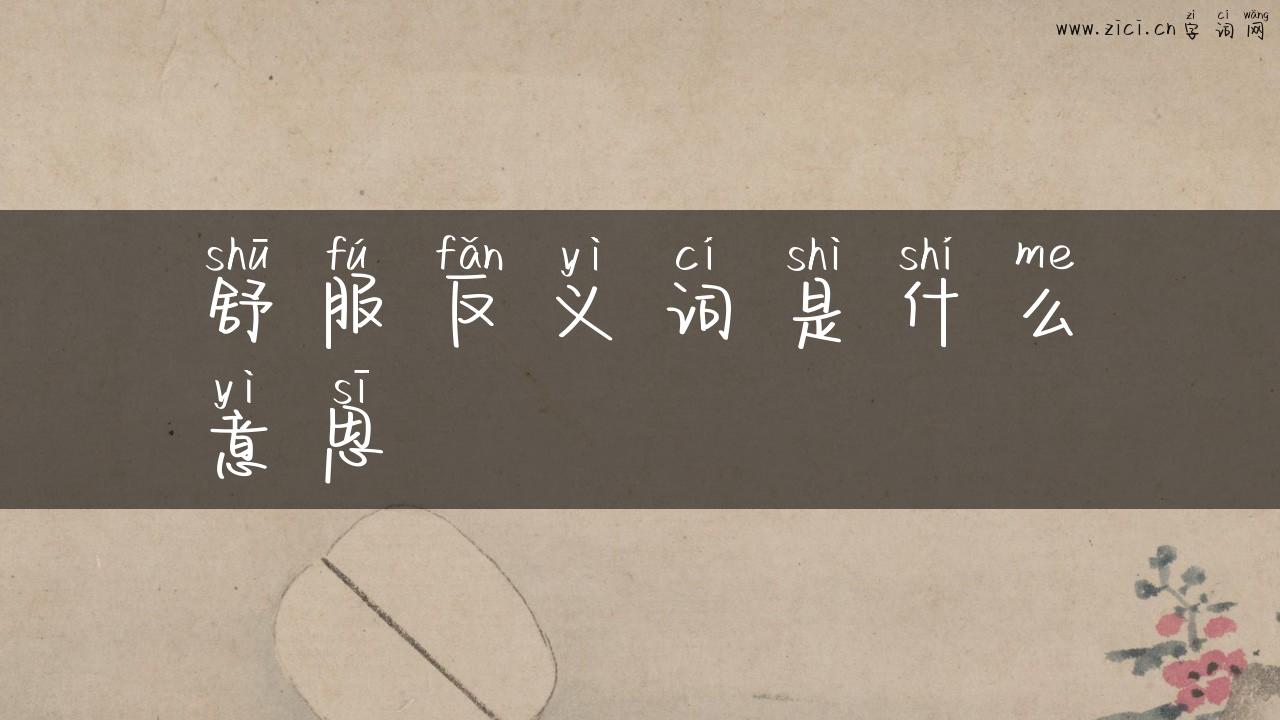 zì cí wǎng
www.zici.cn 字 词 网
shū fú fǎn yì cí shì shí me
舒 服 反 义 词 是 什 么
yì sī
意 思